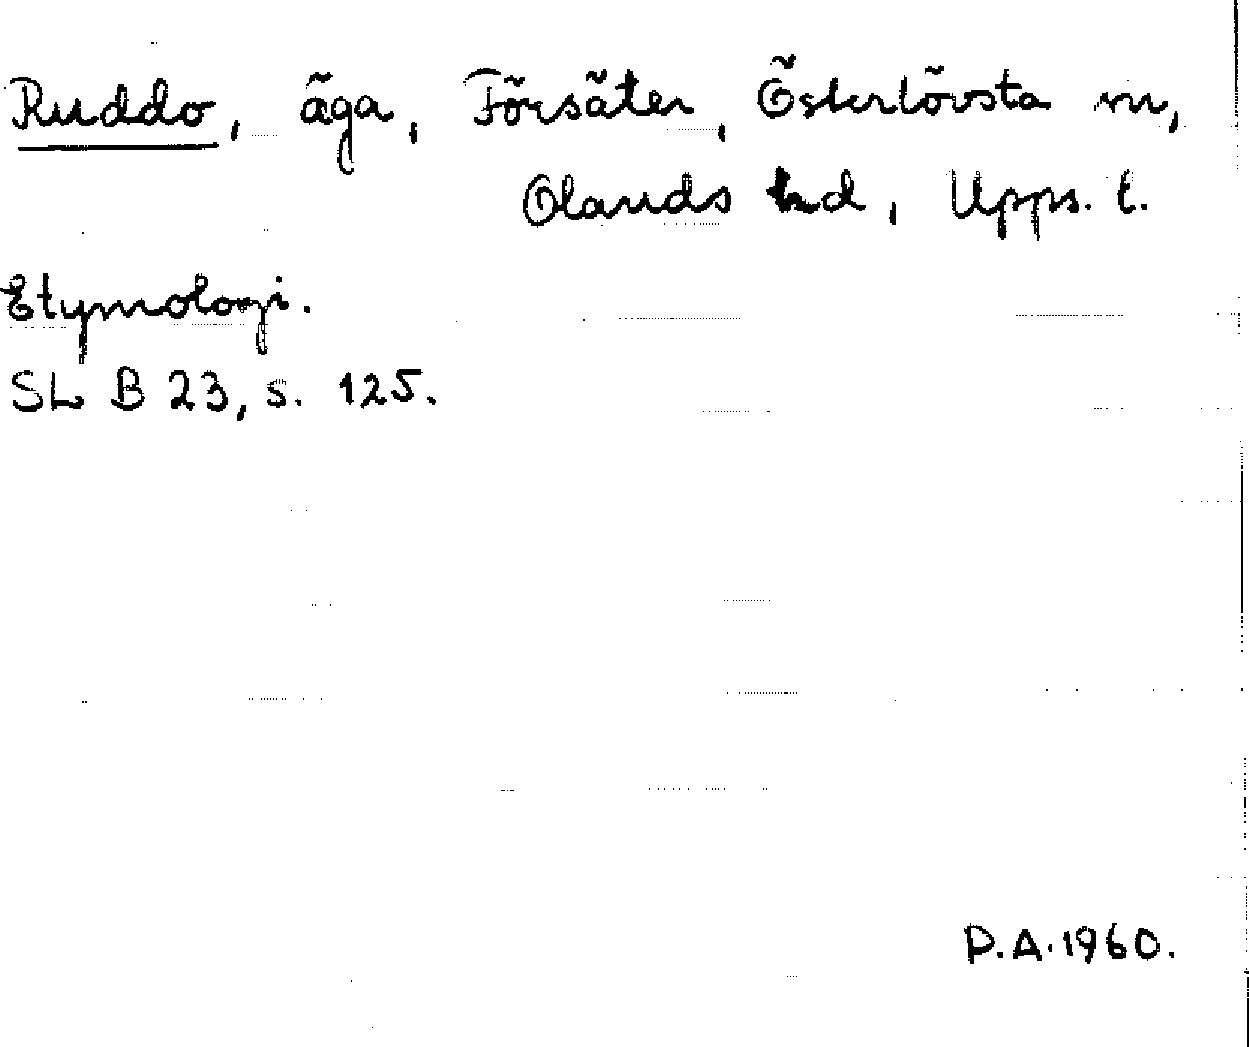 Ruddo, äga, Försäter, Österlövsta sn,
Olands hd, Upps. l.
Etymologi.
SL B 23, s. 125.
P.A. 1960.